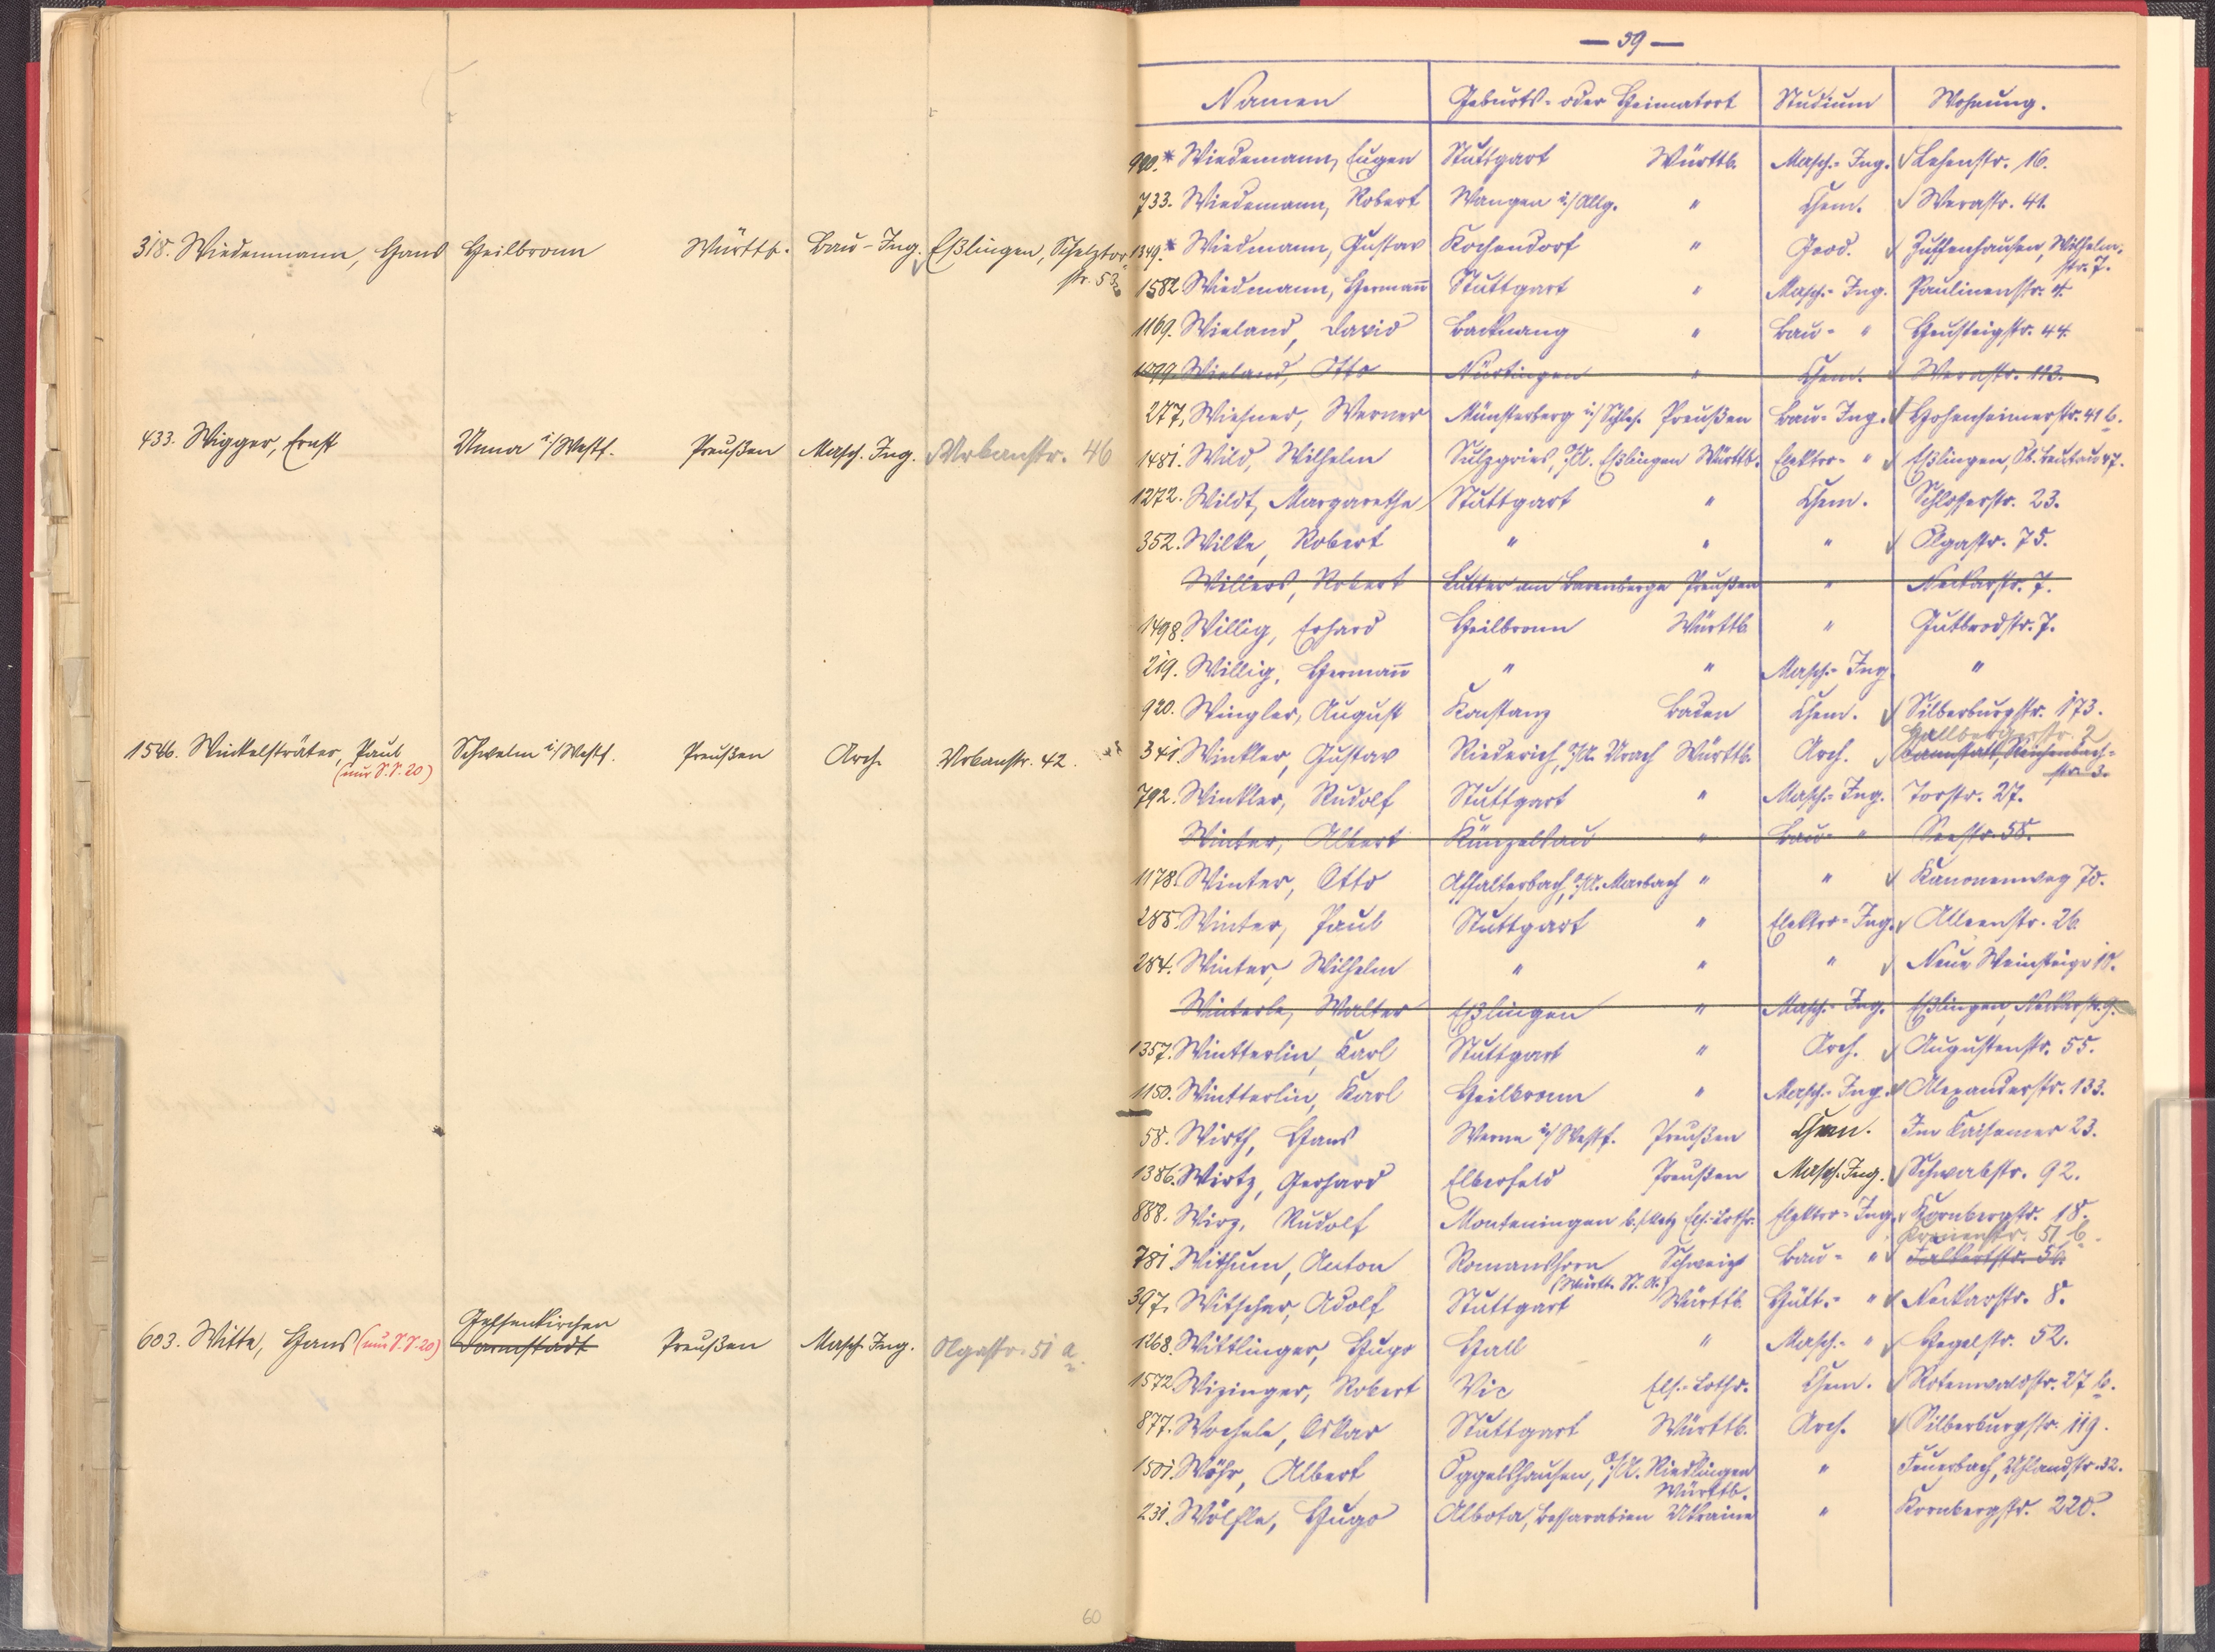 318. Wiedenmann, Hans Heilbronn Württb. Bau-Ing. Eßlingen, Schelztor-
str. 53
433. Wigger, Ernst Unna i/Westf. Preußen Masch. Ing. Urbanstr. 46
1546. Winkelsträter, Paul Schwelm i/Westf. Preußen Arch. Urbanstr. 42.
(nur S.S. 20)
Gelsenkirchen
603. Witte, Hans (nur S.S. 20) Darmstadt Preußen Masch. Ing. Olgastr. 51 a.
60
— 59 —
Namen Geburts- oder Heimatort Studium Wohnung.
900.* Wiedemann, Eugen Stuttgart Württb. Masch.-Ing. Lehenstr. 16.
733. Wiedemann, Robert Wangen i./Allg. " Chem. Werastr. 41.
1349.* Wiedmann, Gustav Kochendorf " Geod. Zuffenhausen, Wilhelm-
str. 7.
1582 Wiedmann, Hermann Stuttgart " Masch.-Ing. Paulinenstr. 4.
1169. Wieland, David Backnang " Bau- " Heusteigstr. 44.
1099. Wieland, Otto Nürtingen " Chem. Werastr. 113.
277. Wiesner, Werner Münsterberg i/Schles. Preußen Bau-Ing. Hohenheimerstr. 41 b.
1481. Wild, Wilhelm Sulzgries, O/A. Eßlingen Württb. Elektro- " Eßlingen, Ob. Beutau 47.
1272. Wildt, Margarethe Stuttgart " Chem. Schlosserstr. 23.
352. Wilke, Robert " " " Olgastr. 75.
Willers, Robert Lutter am Barenberge Preußen " Neckarstr. 7.
1498. Willig, Erhard Heilbronn Württb. " Gutbrodstr. 7.
219. Willig, Hermann " " Masch.-Ing. "
920. Wingler, August Konstanz Baden Chem. Silberburgstr. 173.
Hallbergerstr. 2
341. Winkler, Gustav Riederich, O/A. Urach Württb. Arch. Cannstatt, Reichenbach-
str. 3.
792. Winkler, Rudolf Stuttgart " Masch.-Ing. Torstr. 27.
Winter, Albert Künzelsau " Bau- " Seestr. 58.
1178. Winter, Otto Affalterbach, O/A. Marbach " " Kanonenweg 70.
285. Winter, Paul Stuttgart " Elektro-Ing. Alleenstr. 26
284. Winter, Wilhelm " " " Neue Weinsteige 18.
Winterle, Walter Eßlingen " Masch.-Ing. Eßlingen, Neckarstr. 9.
1357. Wintterlin, Karl Stuttgart " Arch. Augustenstr. 55.
1150. Wintterlin, Karl Heilbronn " Masch.-Ing. Alexanderstr. 133.
58. Wirth, Hans Werne i/Westf. Preußen Chem. Im Kaisemer 23.
1386. Wirtz, Gerhard Elberfeld Preußen Masch. Ing. Schwabstr. 92.
888. Wirz, Rudolf Monteningen b./Metz Els.-Lothr. Elektro-Ing. Kornbergstr. 18.
Kronenstr. 51 b.
781. Withum, Anton Romanshorn Schweiz Bau- " Falkertstr. 56.
(Württ. St. A.)
397. Witscher, Adolf Stuttgart Württb. Hütt.- " Neckarstr. 8.
1268. Wittlinger, Hugo Hall " Masch.- " Hegelstr. 52.
1572. Wizinger, Robert Vic Els.-Lothr. Chem. Rotenwaldstr. 27 b.
877. Woehle, Oskar Stuttgart Württb. Arch. Silberburgstr. 119.
1501. Wöhr, Albert Oggelshausen, O/A. Riedlingen " Feuerbach, Uhlandstr. 32.
Württb.
231. Wölfle, Hugo Albota, Bessarabien Ukraine " Kornbergstr. 22B.